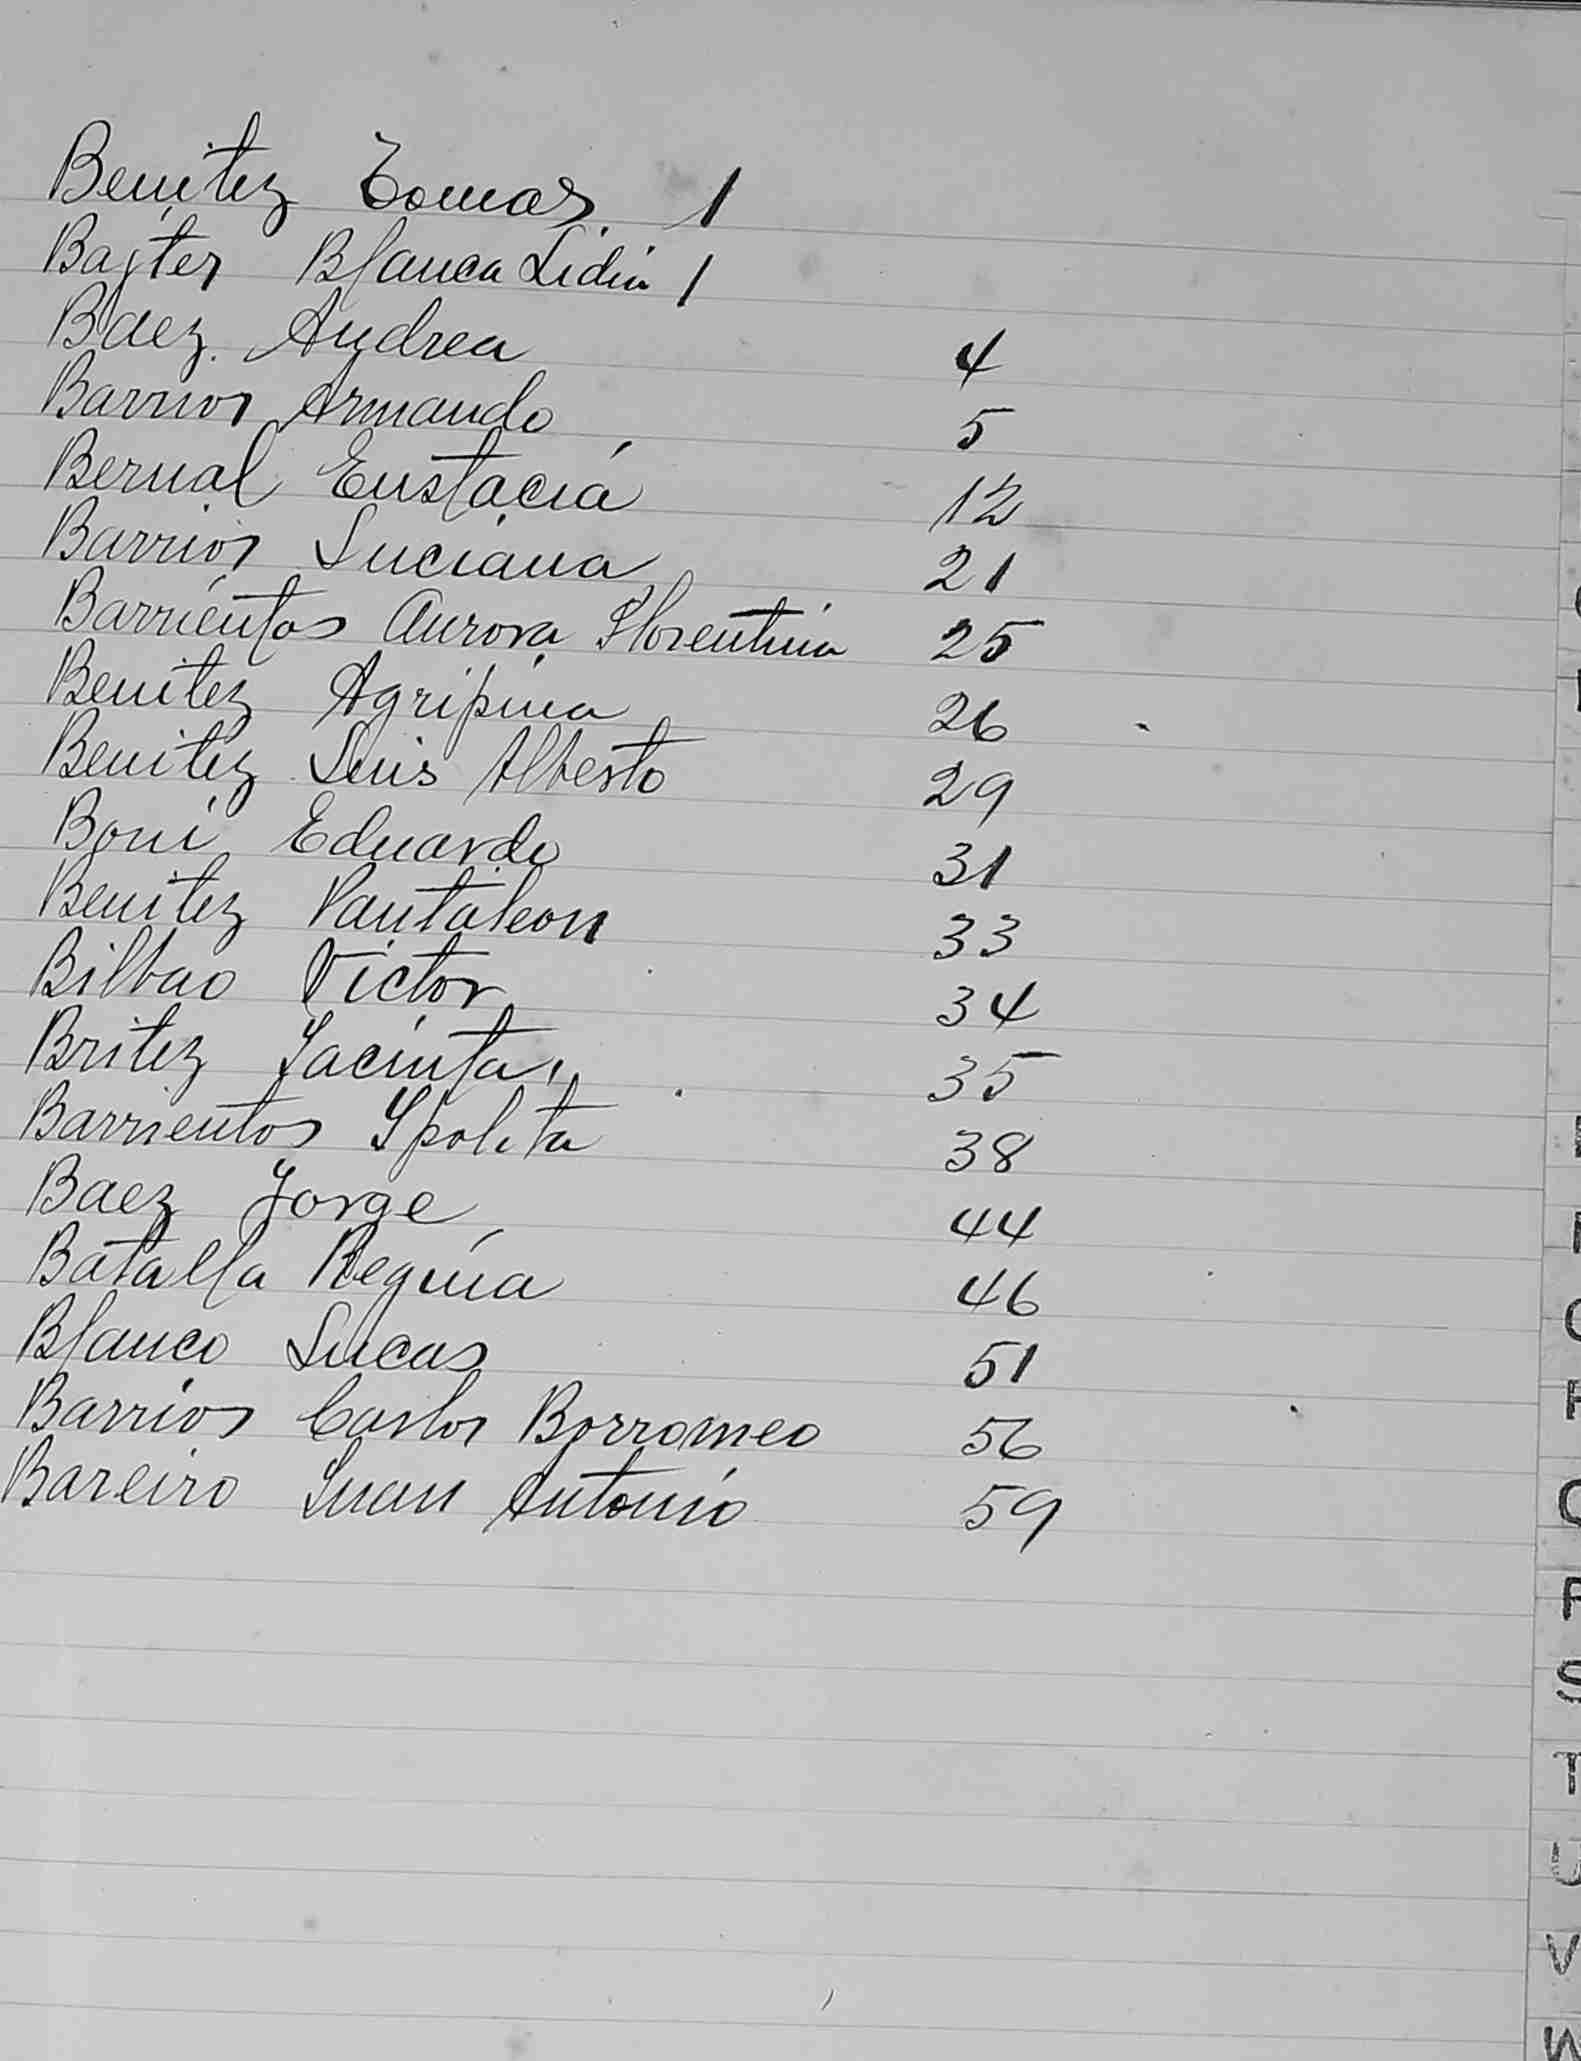 Benitez Tomas 1
Bajter Blanca Lidia 1
Baez Andrea 4
Barrios Armando 5
Bernal Eustacia 12
Barrios Luciana 21
Barrientos Aurora Florentina 25
Benitez Agripina 26
Benitez Luis Alberto 29
Boni Eduardo 31
Benitez Pantaleon 33
Bilbao Victor 34
Britez Jacinta 35
Barrientos Ypolita 38
Baez Jorge 44
Batalla Regina 46
Blanco Lucas 51
Barrios Carlos Borromeo 56
Bareiro Juan Antonio 59
S
T
U
V
W